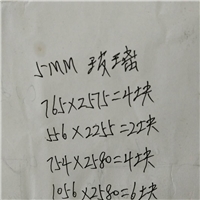 5MM 玻璃
765×2575=4块
556×2255=2块
754×2580=4块
1056×2580=6块